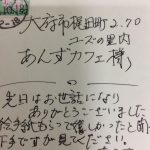 大府市梶田町2.70
コーズの里内
あんずカフェ様
先日はお世話になり
ありがとうございました
絵手紙もらって嬉しかったと前
下手ですが見てください。